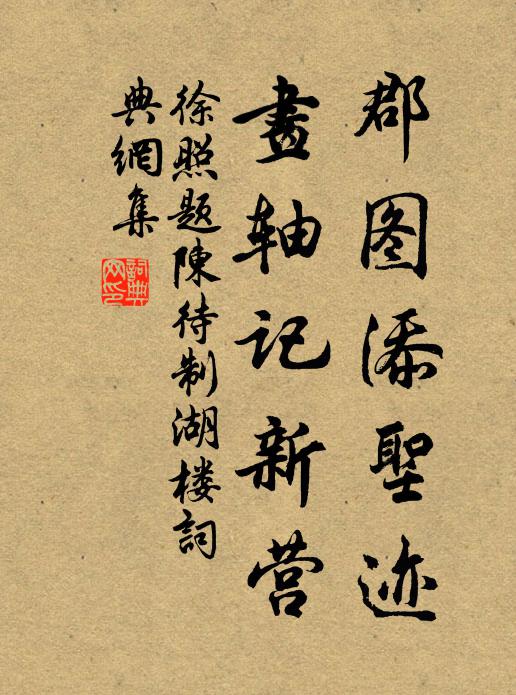 郡图添聖迹
畫轴记新营
徐照题陳待制湖楼詞
典網集
詞典网印